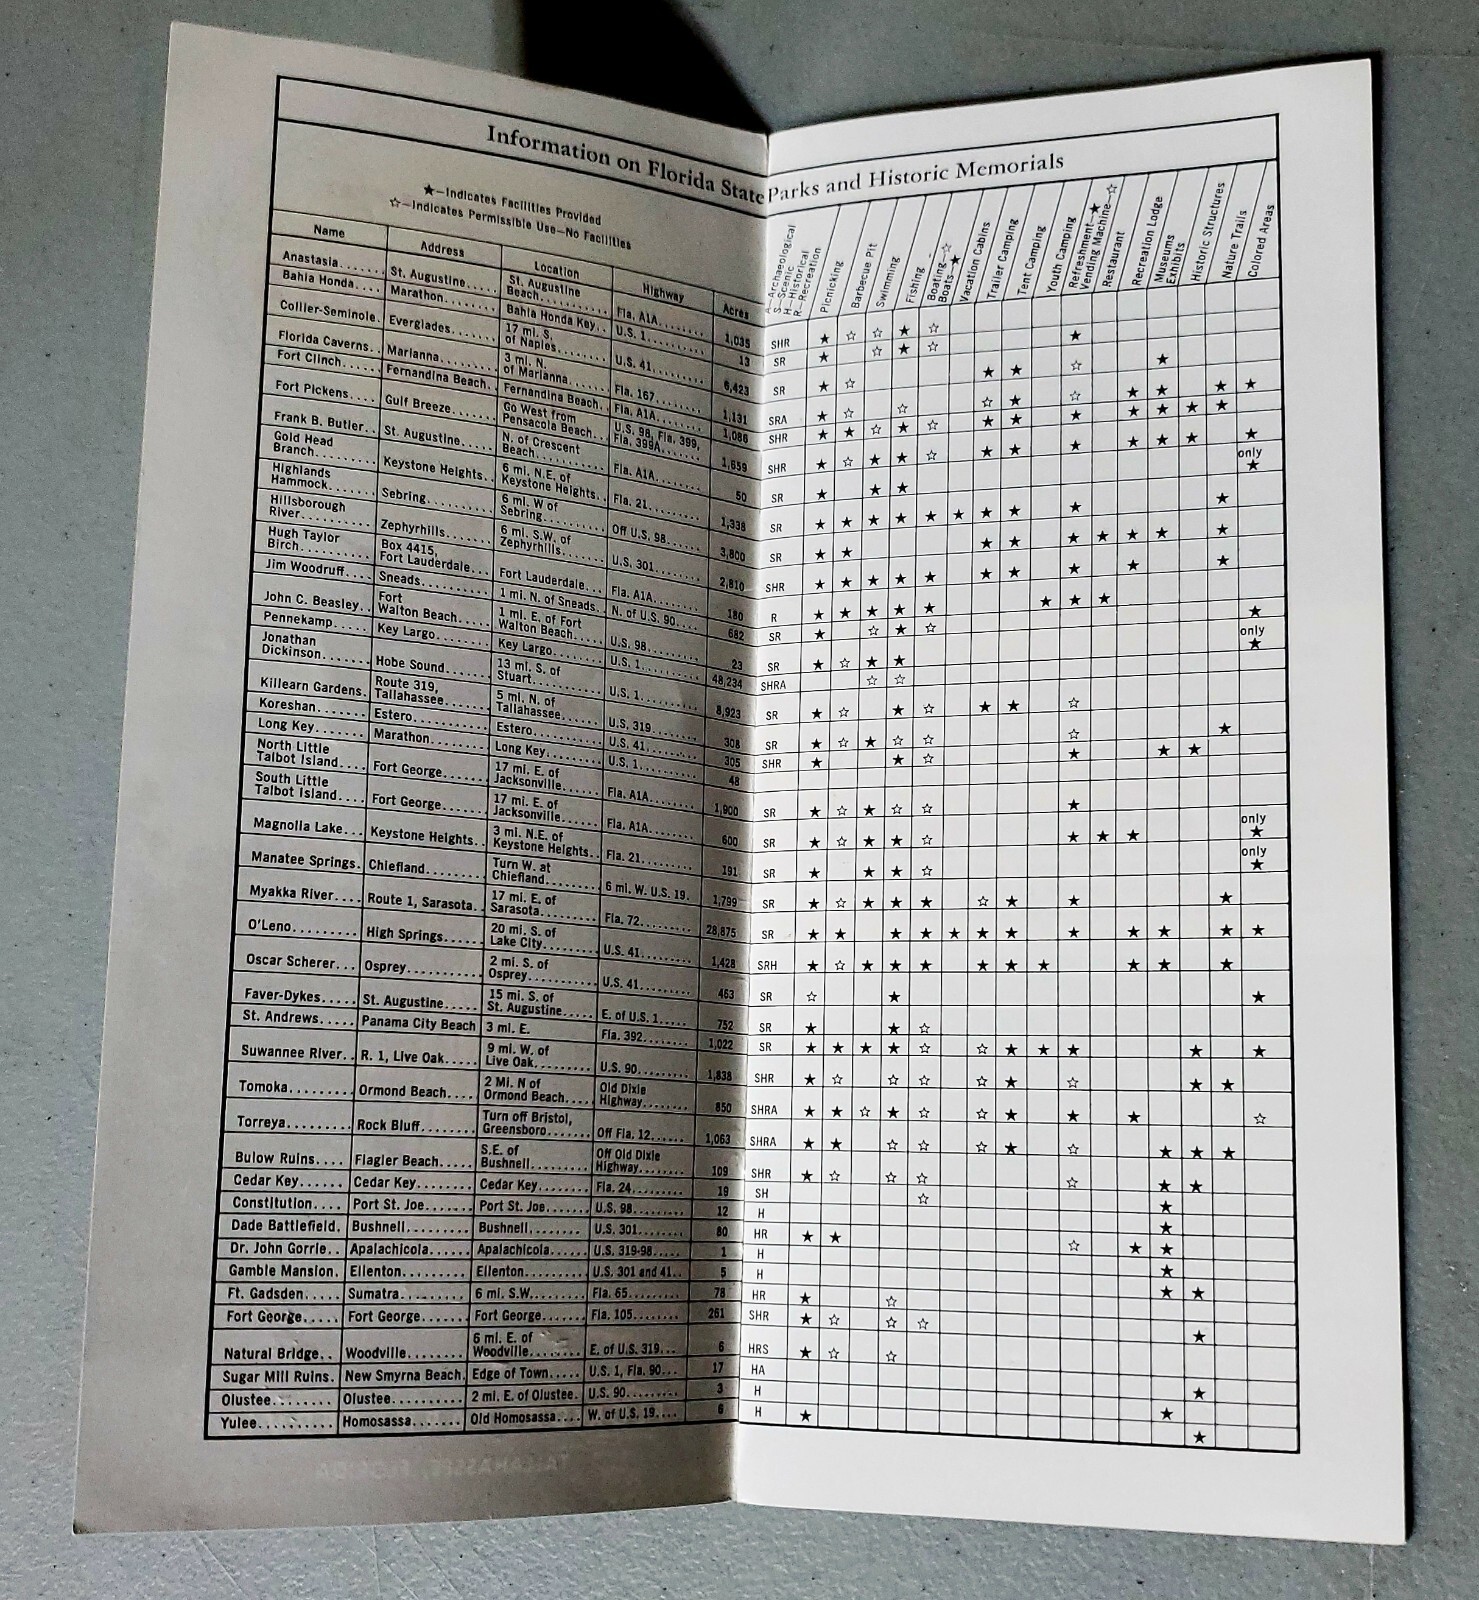 Information on Florida State Parks and Historic Memorials
★—Indicates Facilities Provided
☆—Indicates Permissible Use—No Facilities
Name Address Location Highway Acres
A—Archaeological
S—Scenic
H—Historical
R—Recreation
Picnicking
Barbecue Pit
Swimming
Fishing
Boating—☆
Boats—★
Vacation Cabins
Trailer Camping
Tent Camping
Youth Camping
Refreshment—★
Vending Machine—☆
Restaurant
Recreation Lodge
Museums
Exhibits
Historic Structures
Nature Trails
Colored Areas
Anastasia...... St. Augustine..... St. Augustine Beach....... Fla. A1A....... 1,035 SHR
Bahia Honda.... Marathon........ Bahia Honda Key.. U.S. 1......... 13 SR
Collier-Seminole. Everglades...... 17 mi. S. of Naples....... U.S. 41....... 6,423 SR
Florida Caverns.. Marianna....... 3 mi. N. of Marianna...... Fla. 167....... 1,131 SRA
Fort Clinch..... Fernandina Beach. Fernandina Beach.. Fla. A1A....... 1,086 SHR
Fort Pickens.... Gulf Breeze...... Go West from Pensacola Beach... U.S. 98, Fla. 399, Fla. 399A...... 1,659 SHR
Frank B. Butler.. St. Augustine..... N. of Crescent Beach....... Fla. A1A....... 50 SR only
Gold Head Branch........ Keystone Heights.. 6 mi. N.E. of Keystone Heights.. Fla. 21........ 1,338 SR
Highlands Hammock...... Sebring......... 6 mi. W of Sebring....... Off U.S. 98..... 3,800 SR
Hillsborough River.......... Zephyrhills....... 6 mi. S.W. of Zephyrhills....... U.S. 301....... 2,810 SHR
Hugh Taylor Birch......... Box 4415, Fort Lauderdale... Fort Lauderdale... Fla. A1A....... 180 R
Jim Woodruff.... Sneads......... 1 mi. N. of Sneads.. N. of U.S. 90.... 682 SR
John C. Beasley.. Fort Walton Beach.... 1 mi. E. of Fort Walton Beach..... U.S. 98........ 23 SR only
Pennekamp..... Key Largo....... Key Largo....... U.S. 1......... 48,234 SHRA
Jonathan Dickinson....... Hobe Sound...... 13 mi. S. of Stuart.......... U.S. 1........ 8,923 SR
Killearn Gardens. Route 319, Tallahassee....... 5 mi. N. of Tallahassee...... U.S. 319....... 308 SR
Koreshan....... Estero.......... Estero.......... U.S. 41........ 305 SHR
Long Key....... Marathon........ Long Key....... U.S. 1......... 48
North Little Talbot Island.... Fort George...... 17 mi. E. of Jacksonville...... Fla. A1A....... 1,900 SR
South Little Talbot Island.... Fort George...... 17 mi. E. of Jacksonville...... Fla. A1A....... 600 SR only
Magnolia Lake... Keystone Heights.. 3 mi. N.E. of Keystone Heights.. Fla. 21........ 191 SR only
Manatee Springs. Chiefland........ Turn W. at Chiefland........ 6 mi. W. U.S. 19. 1,799 SR
Myakka River.... Route 1, Sarasota.. 17 mi. E. of Sarasota....... Fla. 72........ 28,875 SR
O'Leno......... High Springs..... 20 mi. S. of Lake City....... U.S. 41....... 1,428 SRH
Oscar Scherer... Osprey.......... 2 mi. S. of Osprey......... U.S. 41........ 463 SR
Faver-Dykes..... St. Augustine..... 15 mi. S. of St. Augustine.... E. of U.S. 1..... 752 SR
St. Andrews..... Panama City Beach 3 mi. E. Fla. 392....... 1,022 SR
Suwannee River.. R. 1, Live Oak..... 9 mi. W. of Live Oak........ U.S. 90........ 1,838 SHR
Tomoka........ Ormond Beach.... 2 Mi. N of Ormond Beach.... Old Dixie Highway....... 850 SHRA
Torreya......... Rock Bluff....... Turn off Bristol, Greensboro...... Off Fla. 12..... 1,063 SHRA
Bulow Ruins.... Flagler Beach..... S.E. of Bushnell........ Off Old Dixie Highway....... 109 SHR
Cedar Key...... Cedar Key....... Cedar Key....... Fla. 24........ 19 SH
Constitution.... Port St. Joe...... Port St. Joe...... U.S. 98........ 12 H
Dade Battlefield. Bushnell........ Bushnell........ U.S. 301....... 80 HR
Dr. John Gorrie.. Apalachicola...... Apalachicola..... U.S. 319-98..... 1 H
Gamble Mansion. Ellenton........ Ellenton........ U.S. 301 and 41.. 5 H
Ft. Gadsden..... Sumatra........ 6 mi. S.W....... Fla. 65........ 78 HR
Fort George..... Fort George..... Fort George..... Fla. 105....... 261 SHR
Natural Bridge.. Woodville....... 6 mi. E. of Woodville........ E. of U.S. 319... 6 HRS
Sugar Mill Ruins. New Smyrna Beach. Edge of Town..... U.S. 1, Fla. 90... 17 HA
Olustee........ Olustee......... 2 mi. E. of Olustee. U.S. 90........ 3 H
Yulee.......... Homosassa....... Old Homosassa.... W. of U.S. 19.... 6 H